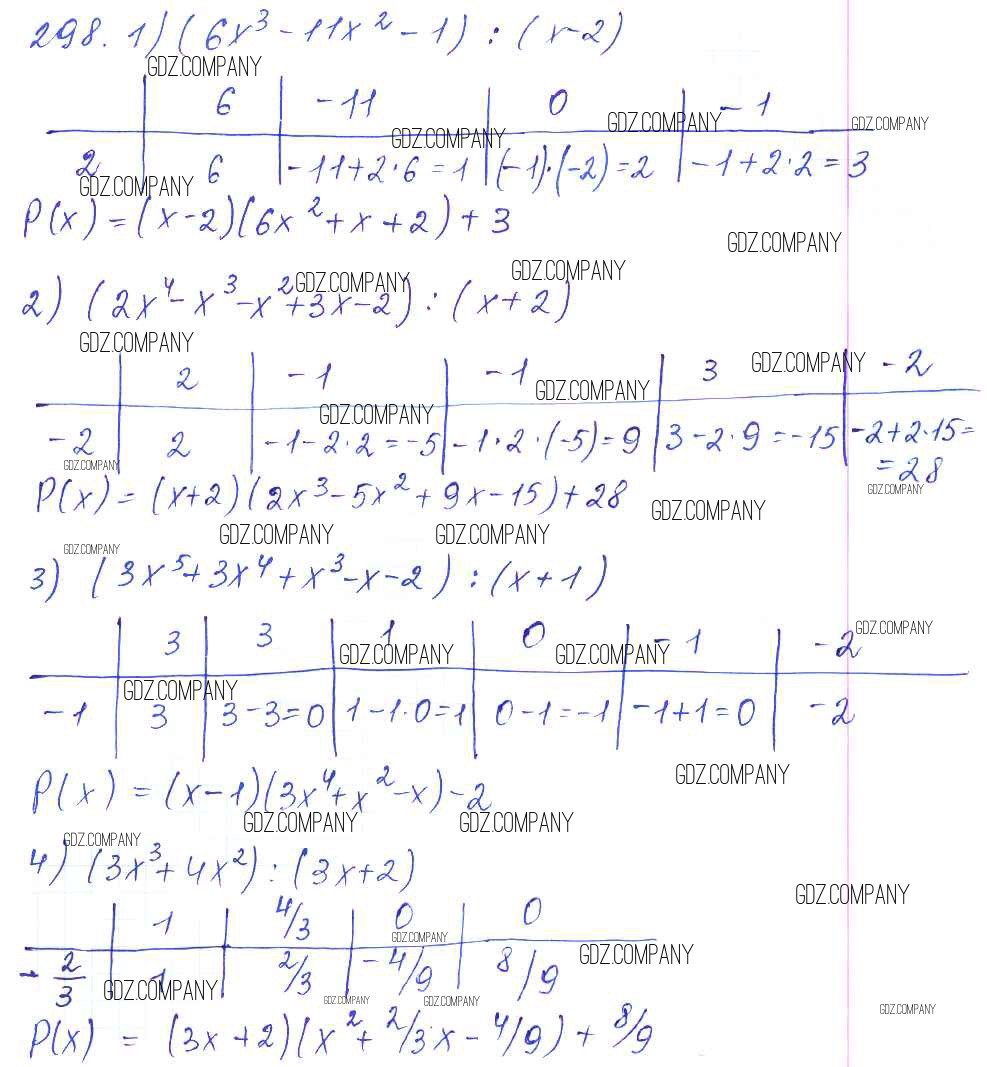 298. 1) (6x³ - 11x² - 1) : (x-2)
GDZ.COMPANY
6 | -11 | 0 | -1
GDZ.COMPANY GDZ.COMPANY GDZ.COMPANY
2 | 6 | -11+2·6=1 | (-1)·(-2)=2 | -1+2·2=3
GDZ.COMPANY
P(x) = (x-2)(6x²+x+2)+3
GDZ.COMPANY
GDZ.COMPANY GDZ.COMPANY
2) (2x⁴-x³-x²+3x-2) : (x+2)
GDZ.COMPANY
2 | -1 | -1 | 3 | -2
GDZ.COMPANY GDZ.COMPANY
GDZ.COMPANY
-2 | 2 | -1-2·2=-5 | -1·2·(-5)=9 | 3-2·9=-15 | -2+2·15=
=28
GDZ.COMPANY GDZ.COMPANY
P(x) = (x+2)(2x³-5x²+9x-15)+28
GDZ.COMPANY
GDZ.COMPANY GDZ.COMPANY
GDZ.COMPANY
3) (3x⁵+3x⁴+x³-x-2) : (x+1)
3 | 3 | 1 | 0 | -1 | -2
GDZ.COMPANY GDZ.COMPANY GDZ.COMPANY
GDZ.COMPANY
-1 | 3 | 3-3=0 | 1-1·0=1 | 0-1=-1 | -1+1=0 | -2
GDZ.COMPANY
P(x) = (x-1)(3x⁴+x²-x)-2
GDZ.COMPANY GDZ.COMPANY
GDZ.COMPANY
4) (3x³+4x²) : (3x+2)
GDZ.COMPANY
1 | 4/3 | 0 | 0
GDZ.COMPANY GDZ.COMPANY
-2/3 | 1 | 2/3 | -4/9 | 8/9
GDZ.COMPANY GDZ.COMPANY GDZ.COMPANY GDZ.COMPANY
P(x) = (3x+2)(x²+2/3x-4/9)+8/9